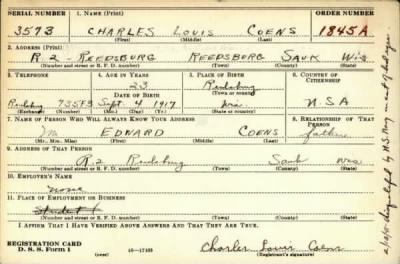 SERIAL NUMBER 1. NAME (Print) ORDER NUMBER
3573 CHARLES LOUIS COENS 1845A
(First) (Middle) (Last)
2. ADDRESS (Print)
R.2 - REEDSBURG REEDSBURG SAUK Wis
(Number and street or R. F. D. number) (Town) (County) (State)
3. TELEPHONE 4. AGE IN YEARS 5. PLACE OF BIRTH 6. COUNTRY OF CITIZENSHIP
23 Reedsburg
DATE OF BIRTH (Town or county)
Reedsburg 735F3 Sept. 4 1917 Wis. U.S.A
(Exchange) (Number) (Mo.) (Day) (Yr.) (State or country)
7. NAME OF PERSON WHO WILL ALWAYS KNOW YOUR ADDRESS 8. RELATIONSHIP OF THAT PERSON
Mr EDWARD COENS father
(Mr., Mrs., Miss) (First) (Middle) (Last)
9. ADDRESS OF THAT PERSON
R.2 Reedsburg Sauk Wis
(Number and street or R. F. D. number) (Town) (County) (State)
10. EMPLOYER'S NAME
none
11. PLACE OF EMPLOYMENT OR BUSINESS
Student
(Number and street or R. F. D. number) (Town) (County) (State)
I AFFIRM THAT I HAVE VERIFIED ABOVE ANSWERS AND THAT THEY ARE TRUE.
REGISTRATION CARD
D. S. S. Form 1 16—17105 Charles Louis Coens
(Registrant's signature)